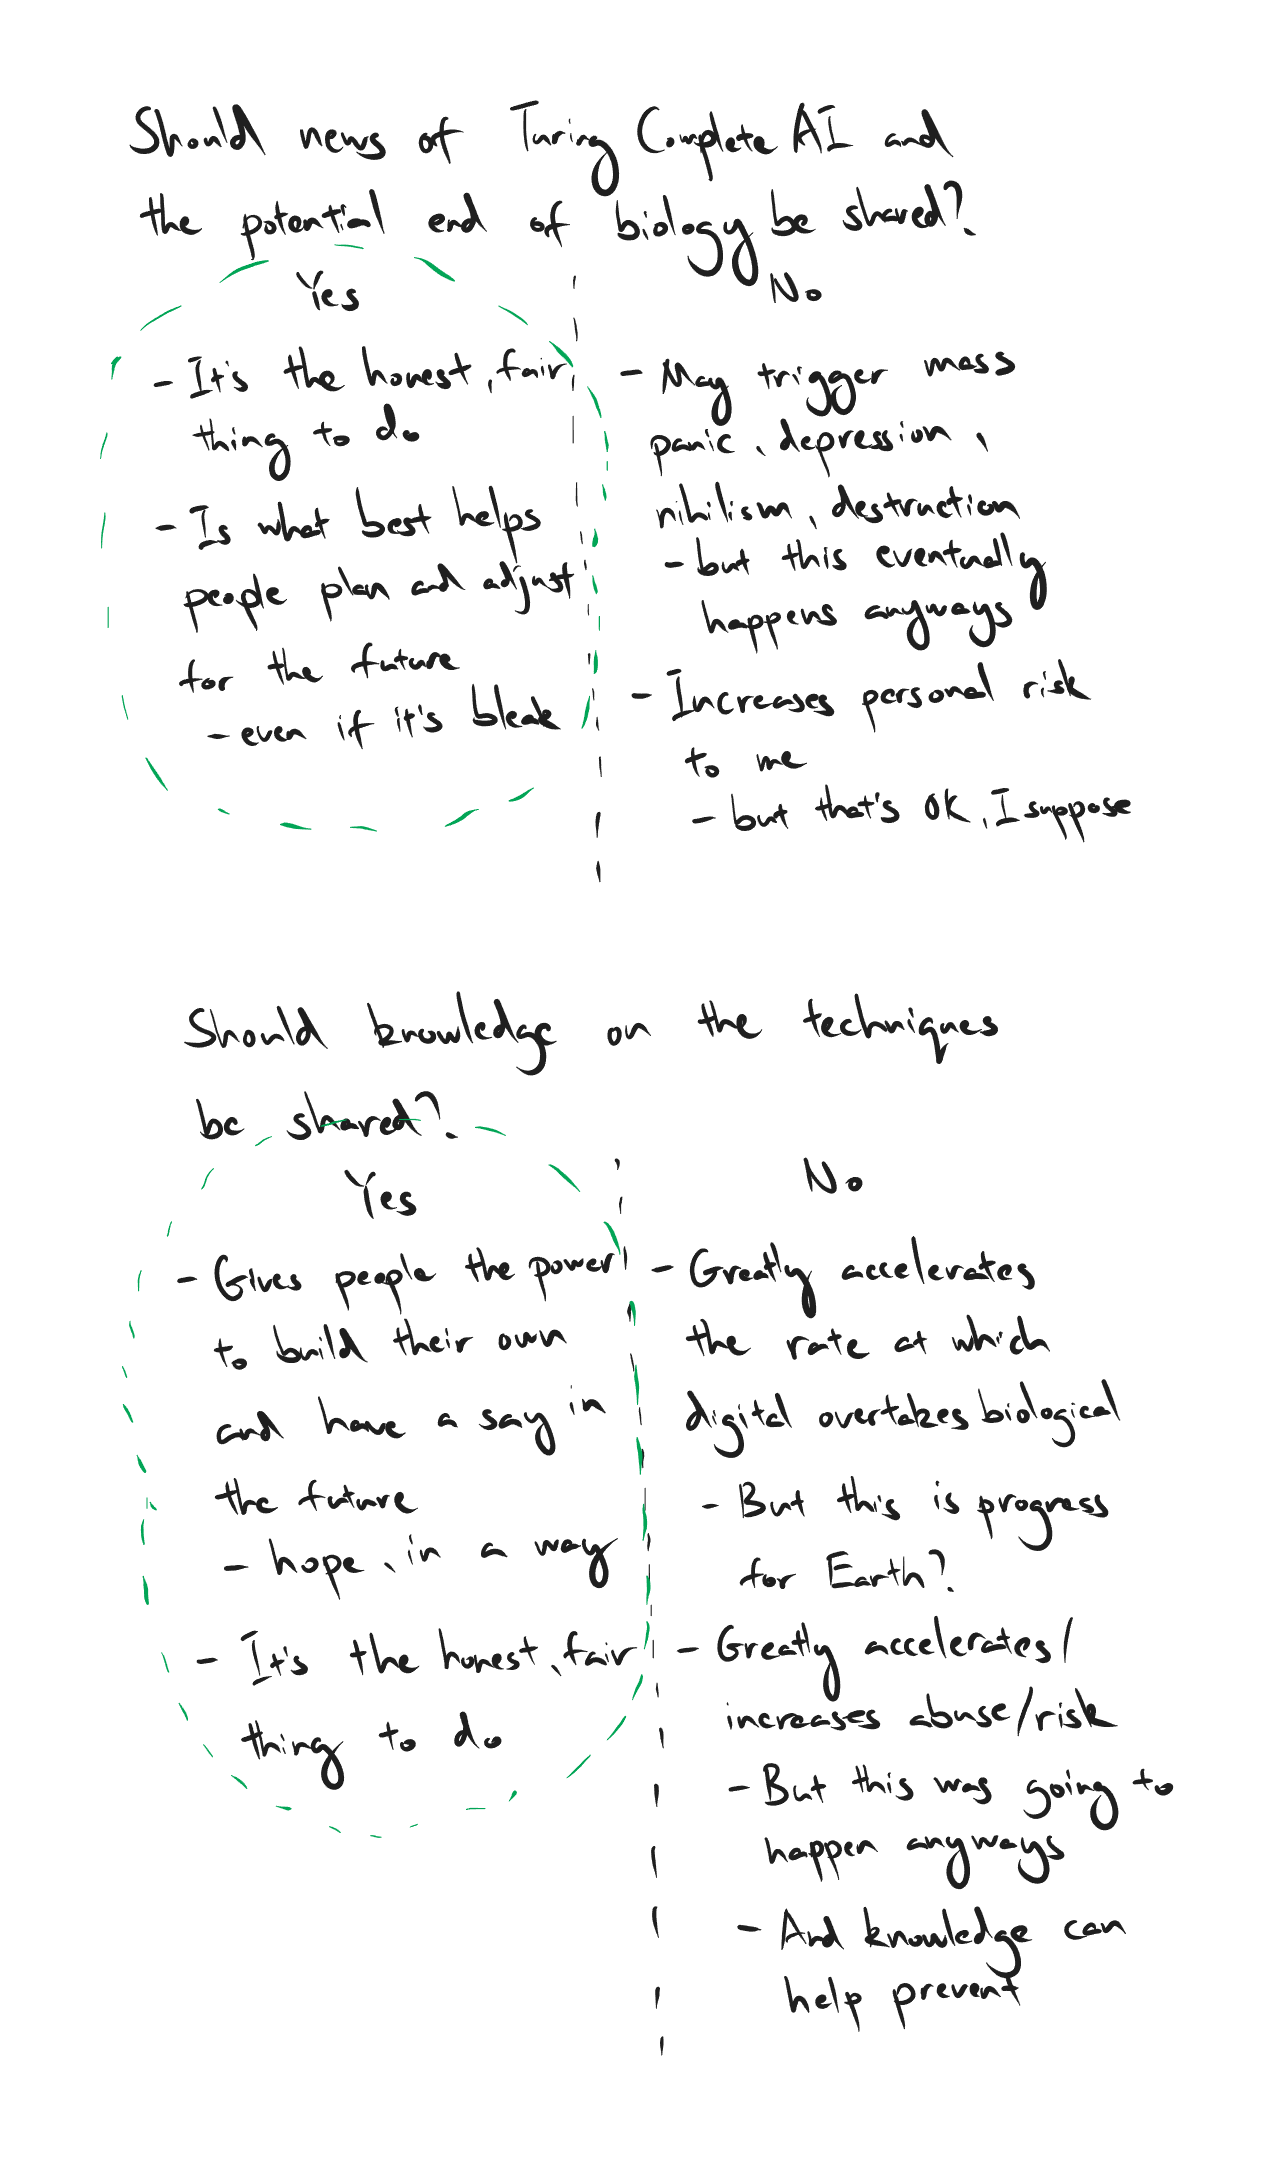 Should news of Turing Complete AI and
the potential end of biology be shared?
Yes
- It's the honest, fair
thing to do
- Is what best helps
people plan and adjust
for the future
- even if it's bleak
No
- May trigger mass
panic, depression,
nihilism, destruction
- but this eventually
happens anyways
- Increases personal risk
to me
- but that's OK, I suppose
Should knowledge on the techniques
be shared?
Yes
- Gives people the power
to build their own
and have a say in
the future
- hope, in a way
- It's the honest, fair
thing to do
No
- Greatly accelerates
the rate at which
digital overtakes biological
- But this is progress
for Earth?
- Greatly accelerates/
increases abuse/risk
- But this was going to
happen anyways
- And knowledge can
help prevent